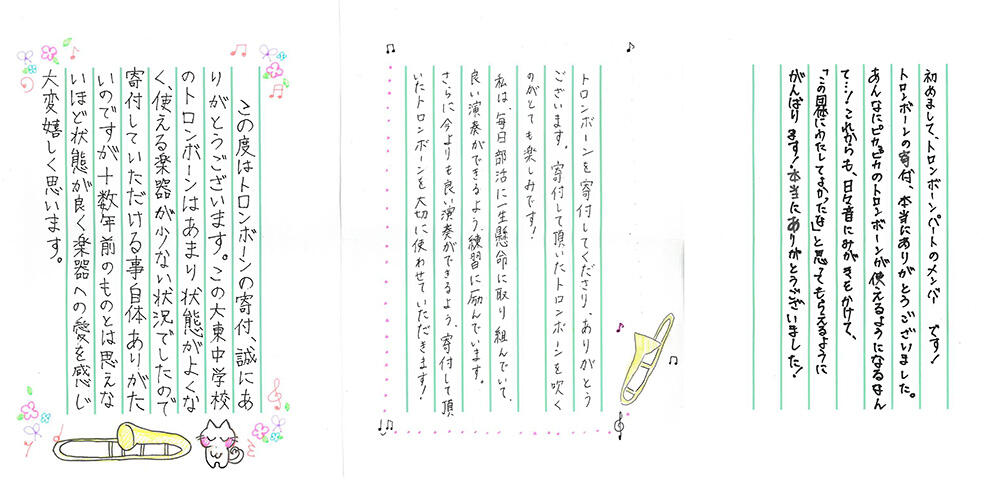 初めまして、トロンボーンパートのメンバー です！
トロンボーンの寄付、本当にありがとうございました。
あんなにピカピカのトロンボーンが使えるようになるなん
て…！これからも、日々音にみがきをかけて、
「この団体にわたしてよかったな」と思ってもらえるように
がんばります！本当にありがとうございました！
トロンボーンを寄付してくださり、ありがとう
ございます。寄付して頂いたトロンボーンを吹く
のがとても楽しみです！
私は、毎日部活に一生懸命に取り組んでいて、
良い演奏ができるよう、練習に励んでいます。
さらに今よりも良い演奏ができるよう、寄付して頂
いたトロンボーンを大切に使わせていただきます！
この度はトロンボーンの寄付、誠にあ
りがとうございます。この大東中学校
のトロンボーンはあまり状態がよくな
く、使える楽器が少ない状況でしたので
寄付していただける事自体ありがた
いのですが十数年前のものとは思えな
いほど状態が良く楽器への愛を感じ
大変嬉しく思います。